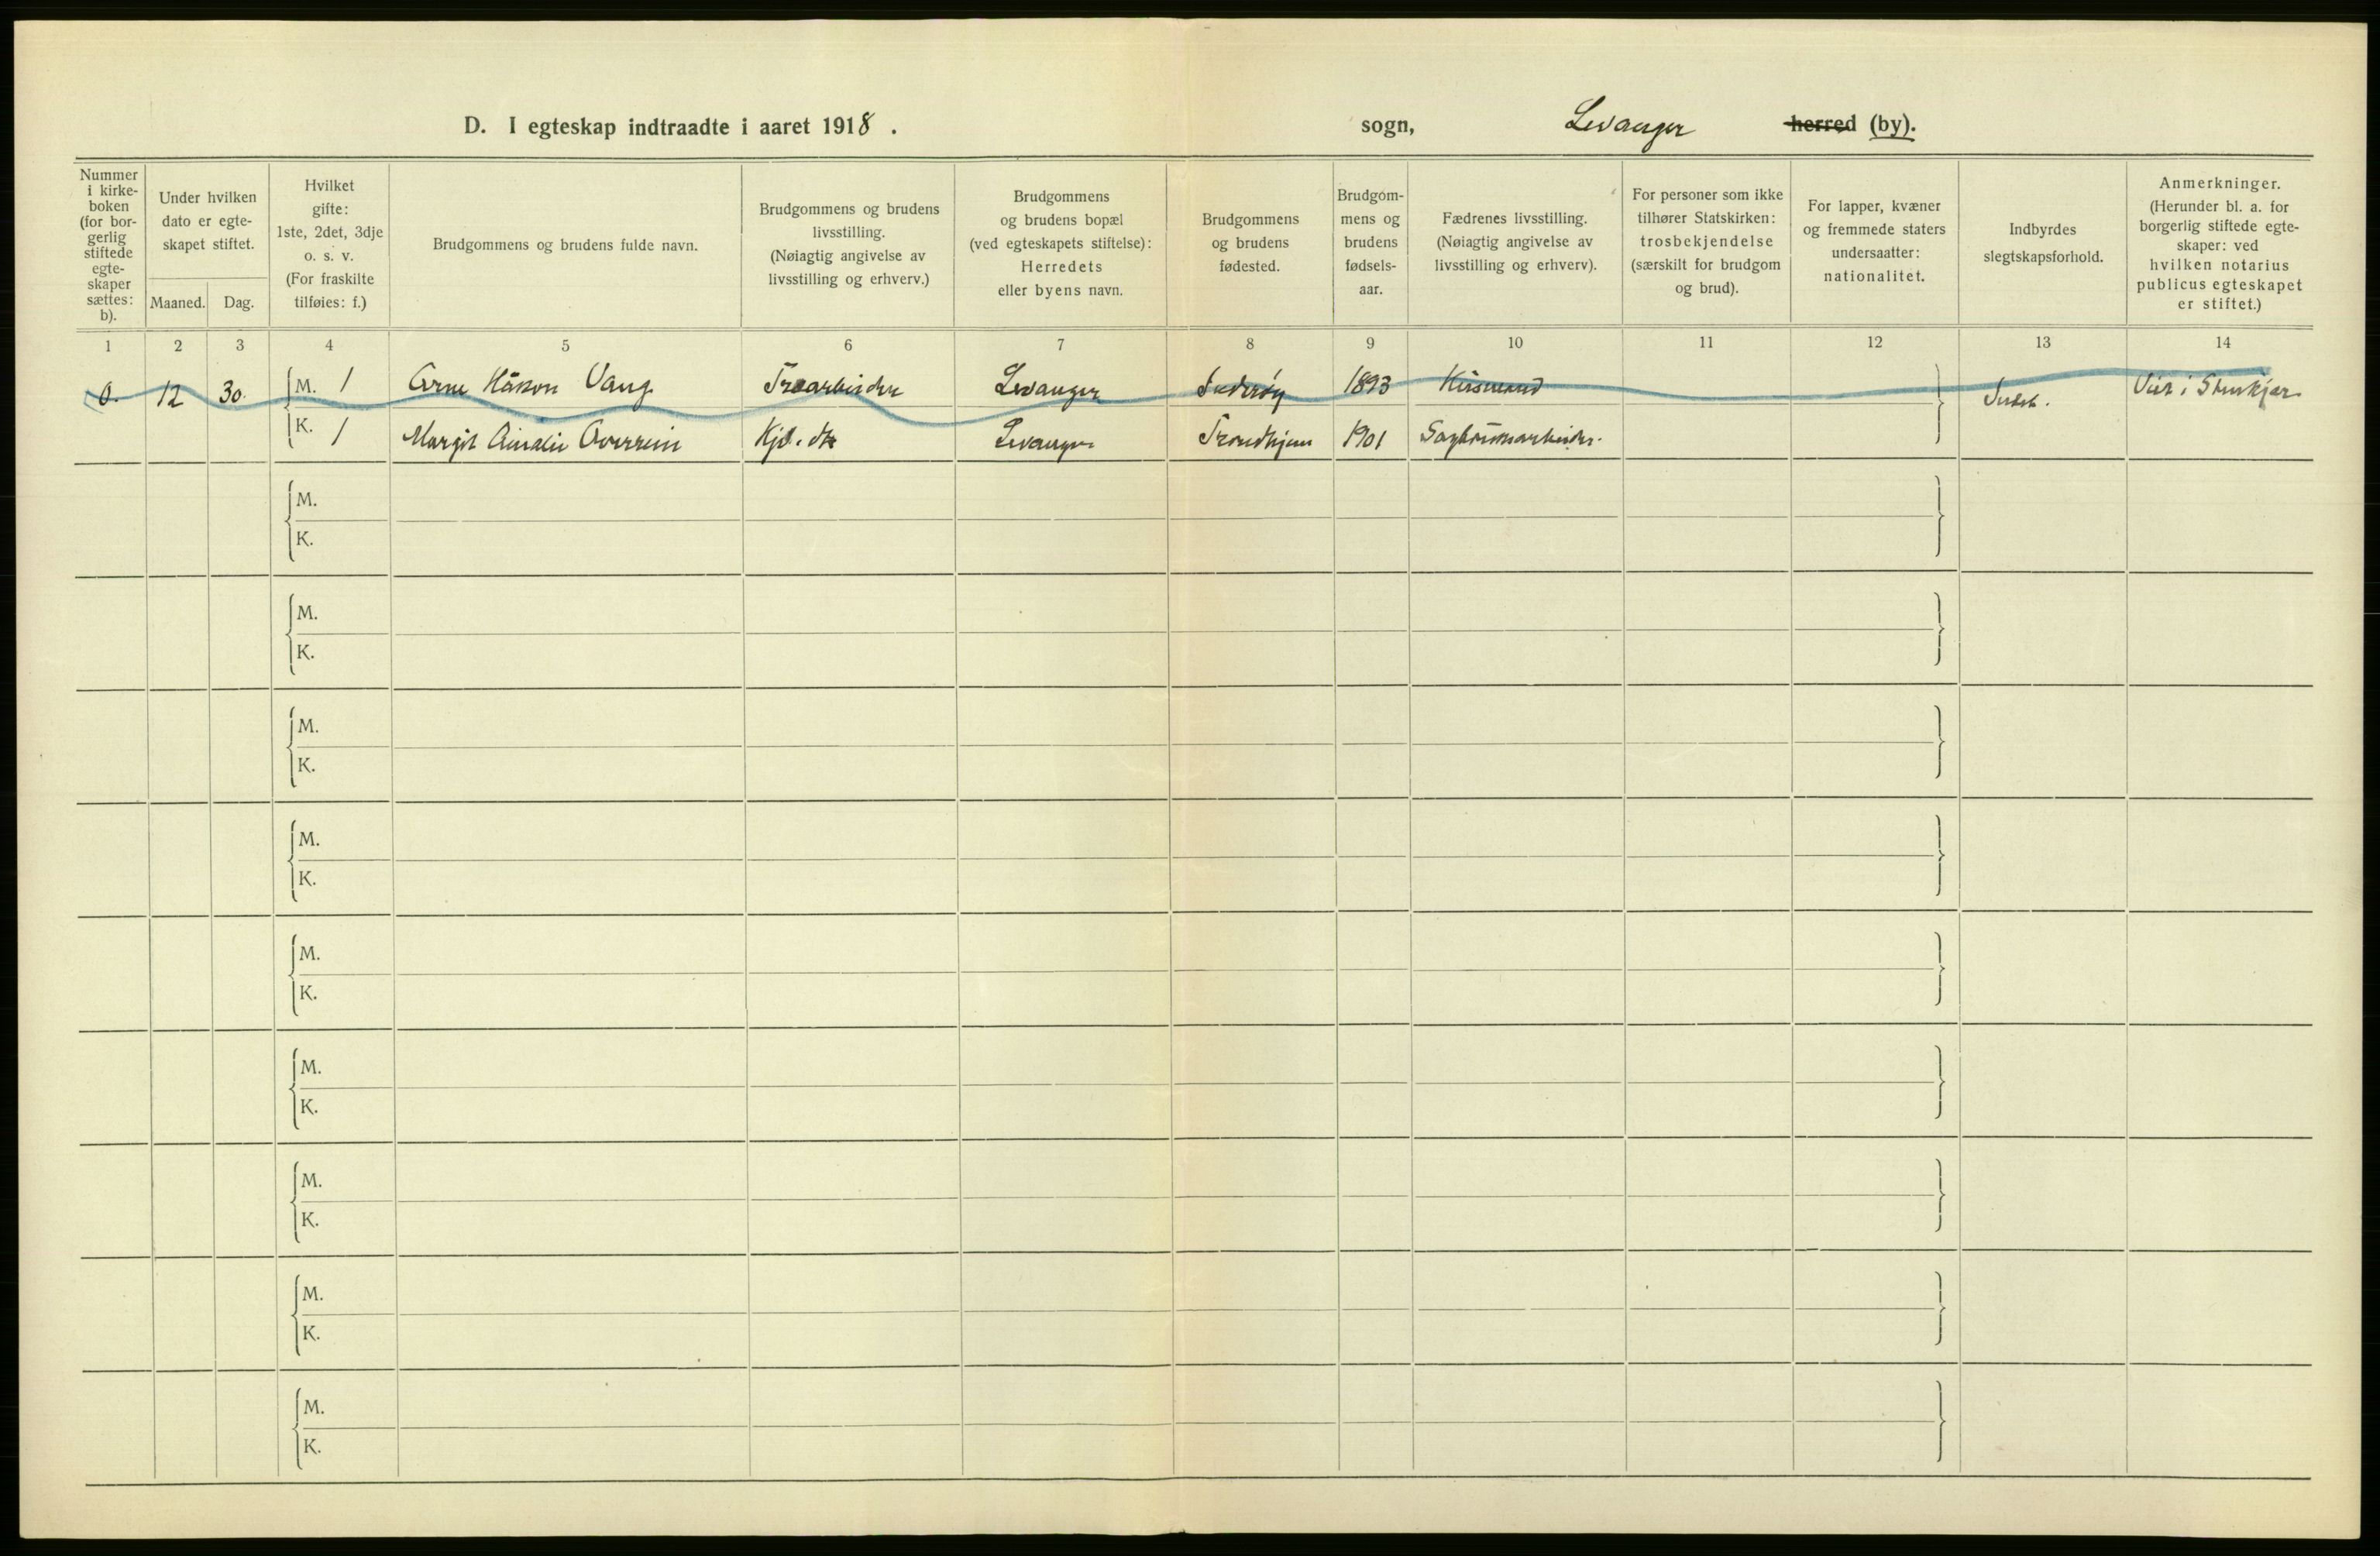 D. I egteskap indtraadte i aaret 1918.
sogn, Levanger herred (by).
Nummer
i kirke-
boken
(for bor-
gerlig
stiftede
egte-
skaper
sættes:
b).
Under hvilken
dato er egte-
skapet stiftet.
Maaned. Dag.
Hvilket
gifte:
1ste, 2det, 3dje
o. s. v.
(For fraskilte
tilføies: f.)
Brudgommens og brudens fulde navn.
Brudgommens og brudens
livsstilling.
(Nøiagtig angivelse av
livsstilling og erhverv.)
Brudgommens
og brudens bopæl
(ved egteskapets stiftelse):
Herredets
eller byens navn.
Brudgommens
og brudens
fødested.
Brudgom-
mens og
brudens
fødsels-
aar.
Fædrenes livsstilling.
(Nøiagtig angivelse av
livsstilling og erhverv).
For personer som ikke
tilhører Statskirken:
trosbekjendelse
(særskilt for brudgom
og brud).
For lapper, kvæner
og fremmede staters
undersaatter:
nationalitet.
Indbyrdes
slegtskapsforhold.
Anmerkninger.
(Herunder bl. a. for
borgerlig stiftede egte-
skaper: ved
hvilken notarius
publicus egteskapet
er stiftet.)
1 2 3 4 5 6 7 8 9 10 11 12 13 14
0. 12 30. M. 1 Arne Håkon Vang Træarbeider Levanger Inderøy 1893 Husmand
Viet i Stenkjær
K. 1 Margit Amalie Overrein Hj.d. Levanger Trondhjem 1901 Sagbruksarbeider.
M.
K.
M.
K.
M.
K.
M.
K.
M.
K.
M.
K.
M.
K.
M.
K.
M.
K.